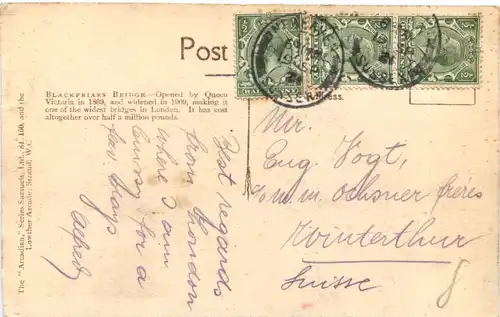 Post
BLACKFRIARS BRIDGE—Opened by Queen
Victoria in 1869, and widened in 1909, making it
one of the widest bridges in London. It has cost
altogether over half a million pounds.
The "Arcadian," Series Samuels, Ltd.,
Lowther Arcade, Strand, W.C.
Best regards
from London
where I am
for a
few days
Alfred
Mr.
Eug. Vogt,
c/o m.m. Ochsner frères
Winterthur
Suisse
8